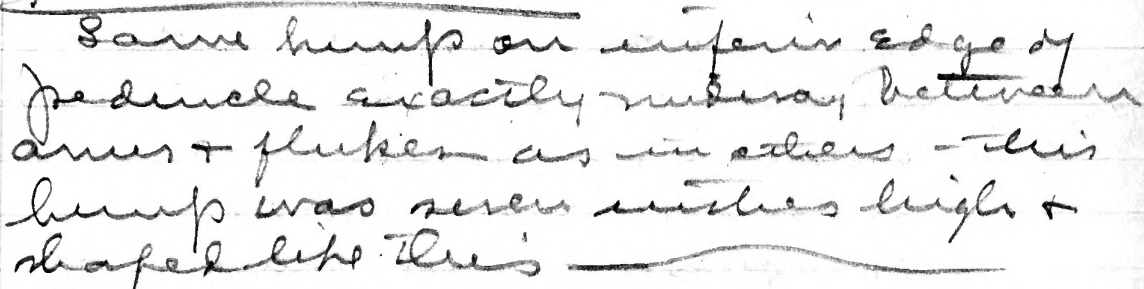 Same hump on inferior edge of
peduncle exactly midway between
anus + flukes as in others - this
hump was seven inches high +
shaped like this